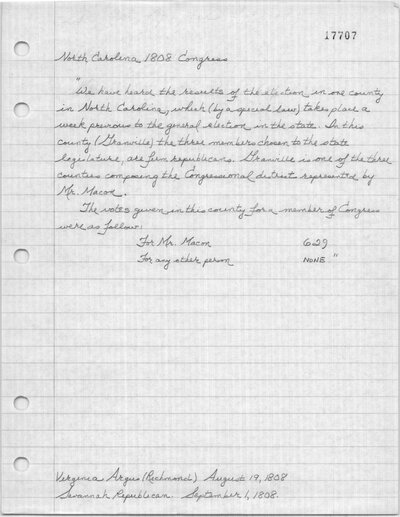 17707
North Carolina 1808 Congress
"We have heard the results of the election in one county
in North Carolina, which (by a special law) takes place a
week previous to the general election in the state. In this
county (Granville) the three members chosen to the state
legislature, are firm republicans. Granville is one of the three
counties composing the Congressional district represented by
Mr. Macon.
The votes given in this county for a member of Congress
were as follow:
For Mr. Macon 629
For any other person NONE "
Virginia Argus (Richmond) August 19, 1808
Savannah Republican. September 1, 1808.